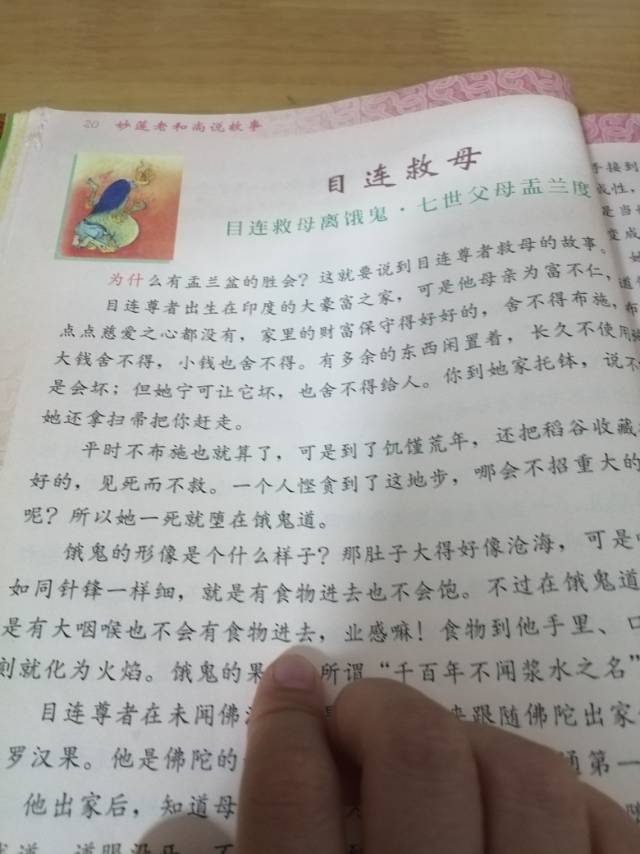 20 妙莲老和尚说故事
目连救母
目连救母离饿鬼·七世父母盂兰度
为什么有盂兰盆的胜会？这就要说到目连尊者救母的故事。
目连尊者出生在印度的大豪富之家，可是他母亲为富不仁，
点点慈爱之心都没有，家里的财富保守得好好的，舍不得布施，
大钱舍不得，小钱也舍不得。有多余的东西闲置着，长久不使用
是会坏；但她宁可让它坏，也舍不得给人。你到她家托钵，说不
她还拿扫帚把你赶走。
平时不布施也就算了，可是到了饥馑荒年，还把稻谷收藏
好的，见死而不救。一个人悭贪到了这地步，哪会不招重大的
呢？所以她一死就堕在饿鬼道。
饿鬼的形像是个什么样子？那肚子大得好像沧海，可是
如同针锋一样细，就是有食物进去也不会饱。不过在饿鬼道
是有大咽喉也不会有食物进去，业感嘛！食物到他手里、口
刻就化为火焰。饿鬼的果 所谓“千百年不闻浆水之名”
目连尊者在未闻佛 来跟随佛陀出家
罗汉果。他是佛陀的 通第一
他出家后，知道母
手接到
成性，
是当
变成